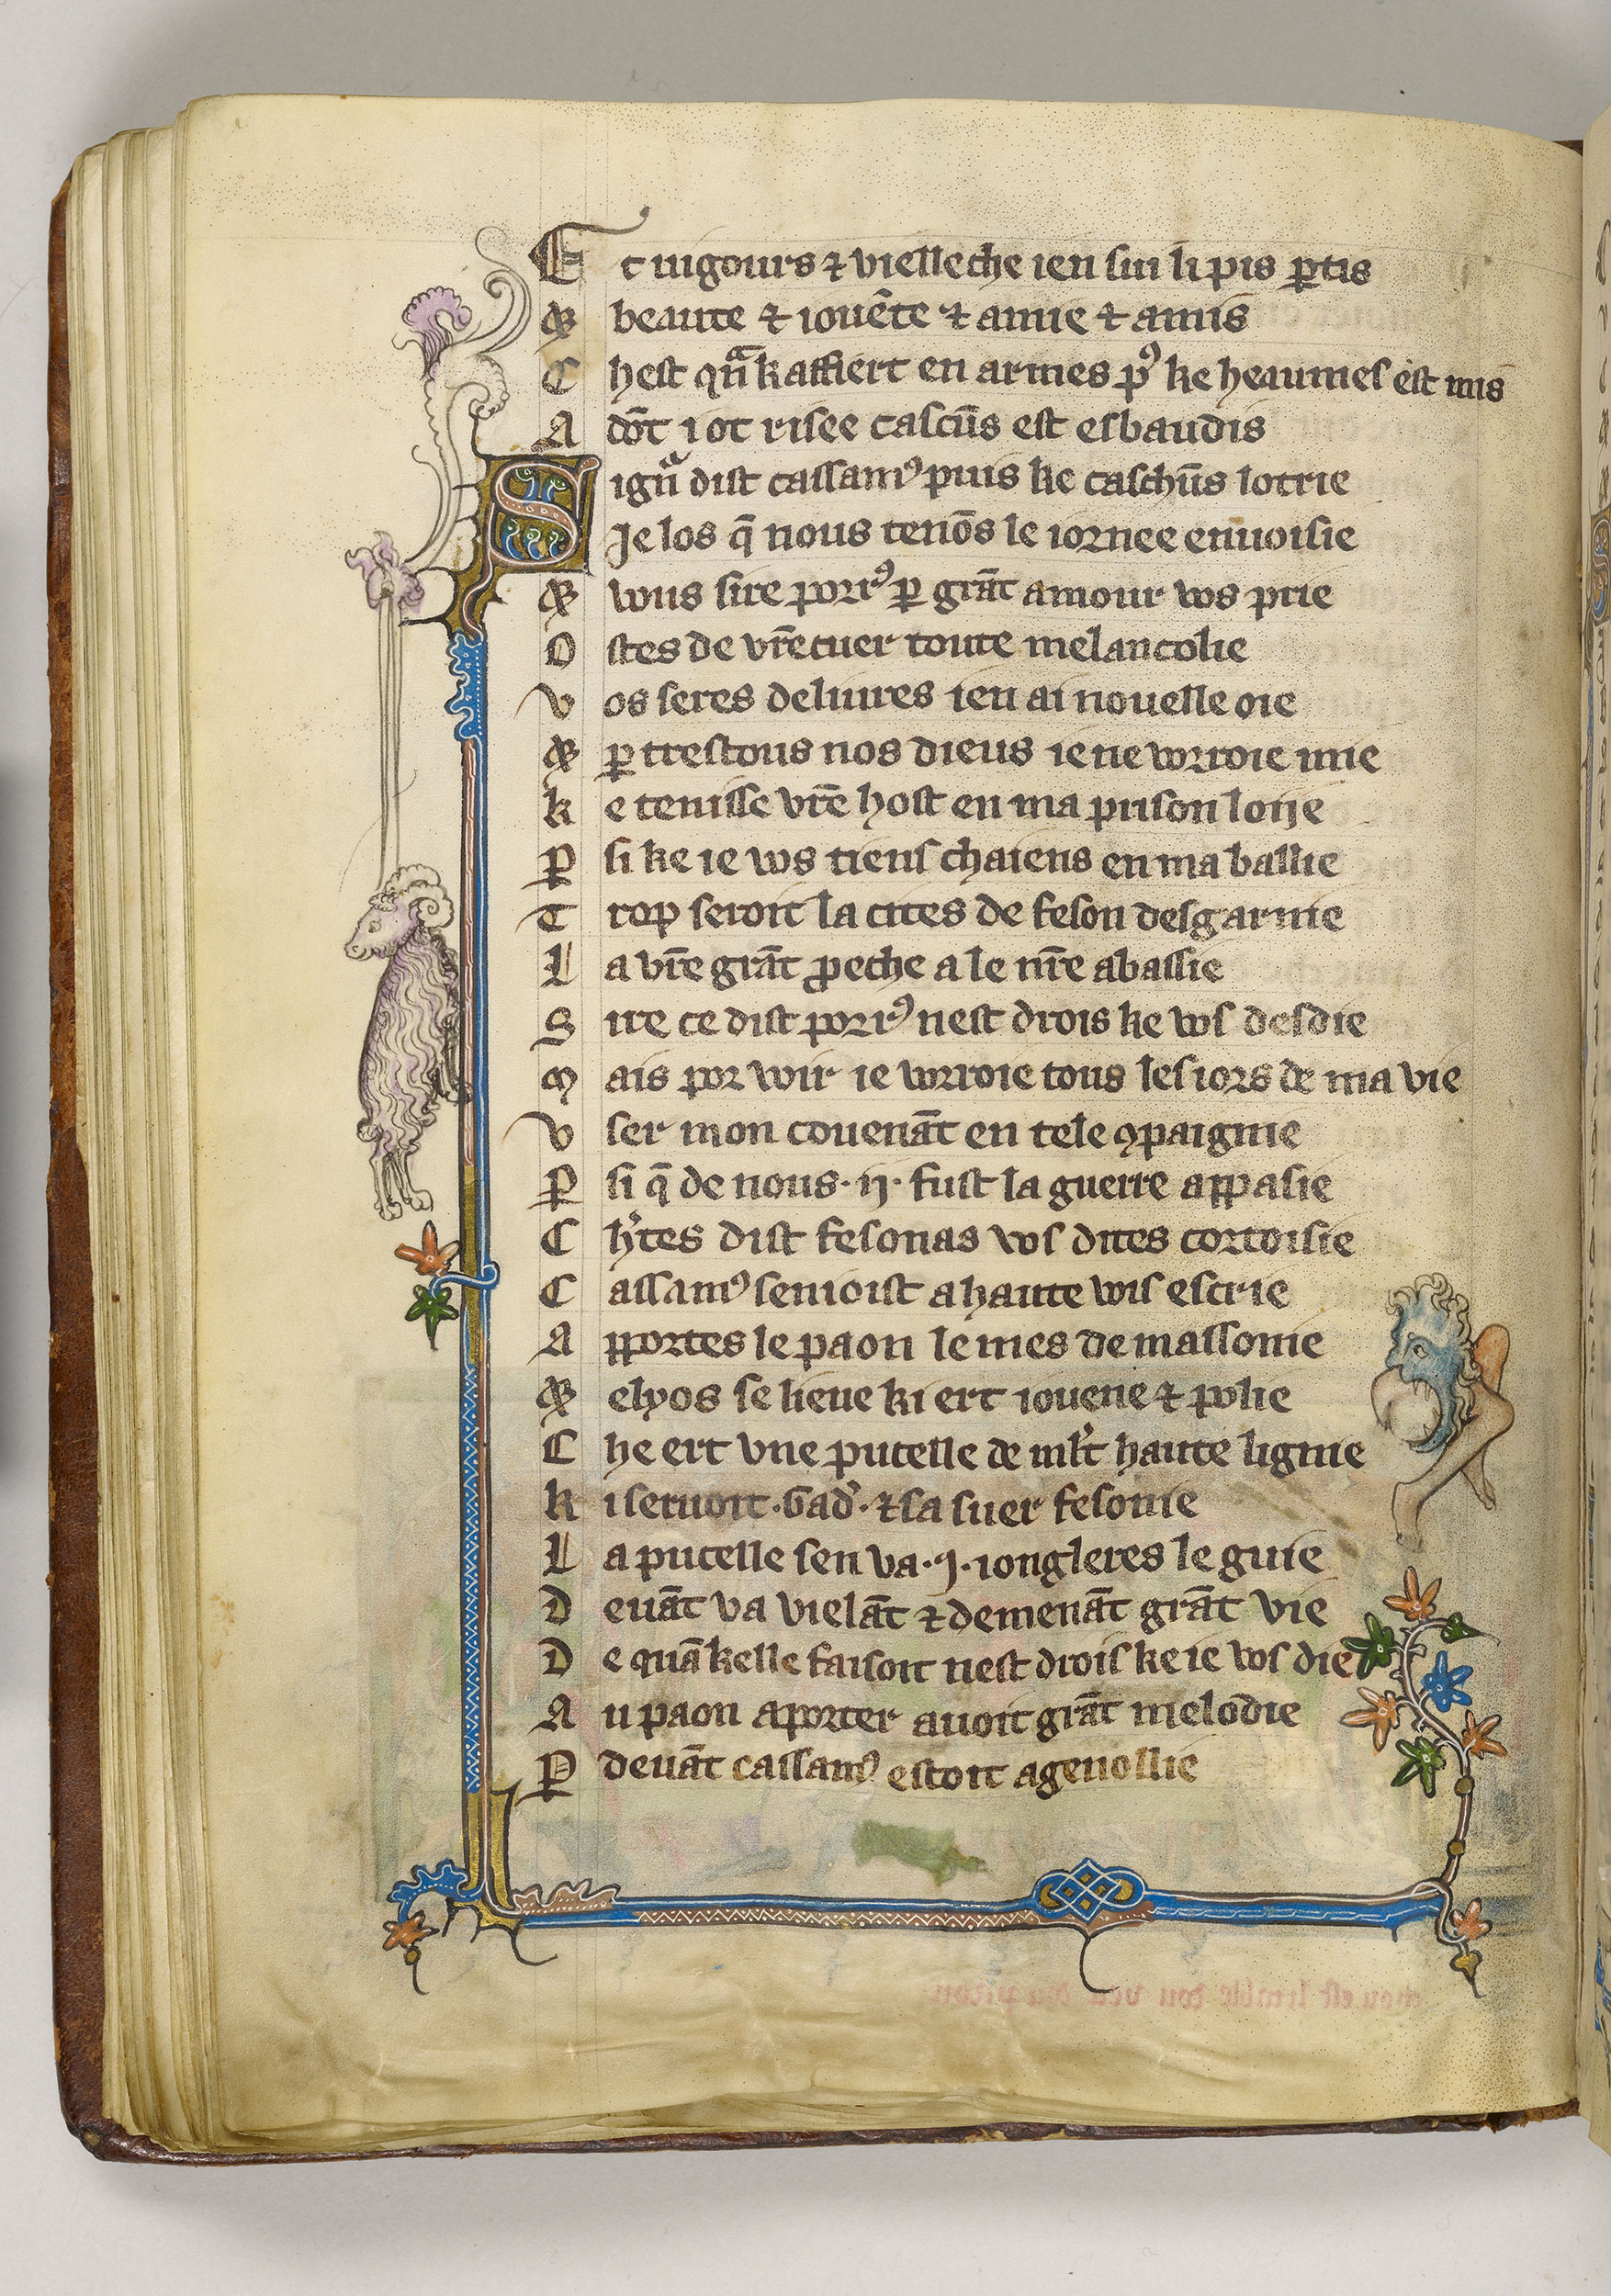 Et uigours ⁊ vielleche ien sui li pis ꝑtis
⁊ beaute ⁊ iouēte ⁊ amie ⁊ amis
Chest qñ kaffiert en armes pꝰ ke heaumes est mis
A dōt i ot risee cascūs est esbaudis
Signᵃ dist cassamꝰ puis ke caschūs lotrie
Je los q̄ nous tenōs le iornee enuoisie
⁊ vous sire porrꝰ ꝑ grāt amour vos prie
Ostes de vr̄e cuer toute melancolie
Vos seres deliures ien ai nouelle oie
⁊ ꝑ trestous nos dieus ie ne vorroie mie
ke tenisse vr̄e host en ma prison loije
Ꝑ si ke ie vos tiens chaiens en ma baillie
Trop seroit la cites de feson desgarnie
La vr̄e grāt ꝓeche a le nr̄e abassie
Sire ce dist porrꝰ nest drois ke vos desdie
Mais por voir ie vorroie tous les iors de ma vie
Vser mon couenāt en tele ꝯpaignie
Ꝑ si q̄ de nous ·ij· fust la guerre appasie
Ch'tes dist fesonas vos dites cortoisie
Cassamꝰ sen ioist a haute vois escrie
Apportes le paon le mes de massonie
⁊ elyos se lieue ki ert iouene ⁊ polie
Che ert vne pucelle de ml't haute lignie
Ki seruoit ·Gad'· ⁊ sa suer fesonie
La pucelle sen va ·j· iongleres le guie
Deuāt va vielāt ⁊ demenāt grāt vie
De quākelle faisoit nest drois ke ie vos die
Au paon aporter auoit grāt melodie
Ꝑ deuāt cassamꝰ estoit agenollie